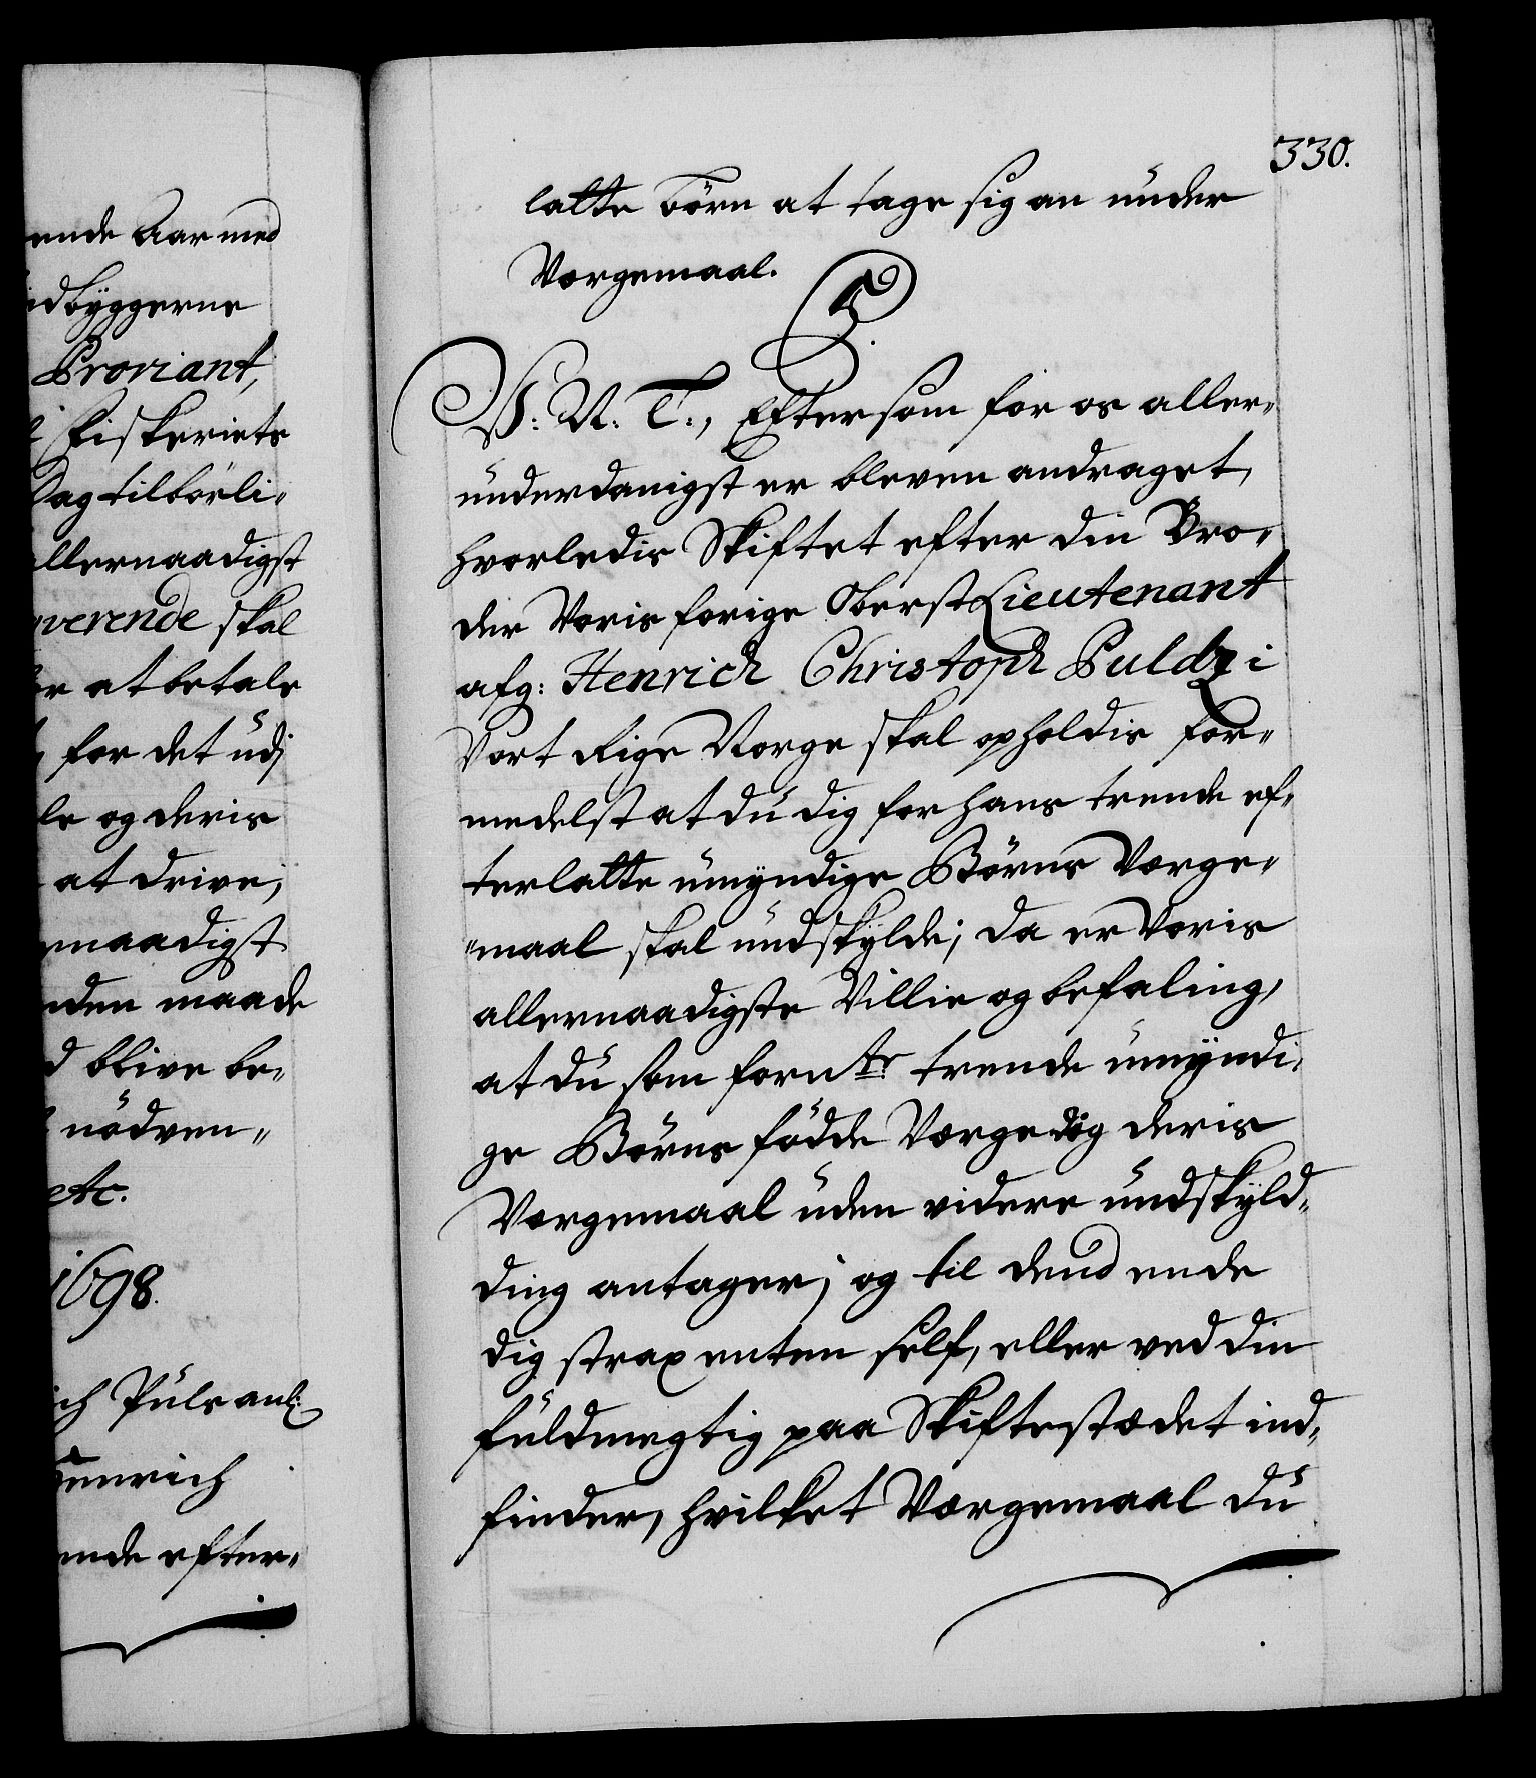 ende Aar med
idbyggerne
Proviant,
Fiskeriets
Dag tilbörli-
allernaadigst
verende skal
at betale
for det udj
le og deris
at drive,
rnaadigst
nden maade
d blive be-
nödven-
etc.
1698.
ich Puls anl:
Henrich
ende efter-
330.
latte Börn at tage sig an under
Vergemaal.
5.
V: U: T:, Eftersom for os aller-
underdanigst er bleven andraget,
hvorledis Skiftet efter din Bro-
der Voris forige Oberst Lieutenant
afg: Henrich Christoph Puldz i
Vort Rige Norge skal opholdis for-
medelst at du dig for hans trende ef-
terlatte umyndige Börns Verge-
"maal skal undskylde; da er Voris
allernaadigste Villie og befaling,
at du som fornte trende umyndi-
ge Börns födde Verge dig deris
Vergemaal uden videre undskyld-
ding antager; og til dend ende
dig strax enten self, eller ved din
fuldmegtig paa Skiftestedet ind-
finder, hvilket Vergemaal du